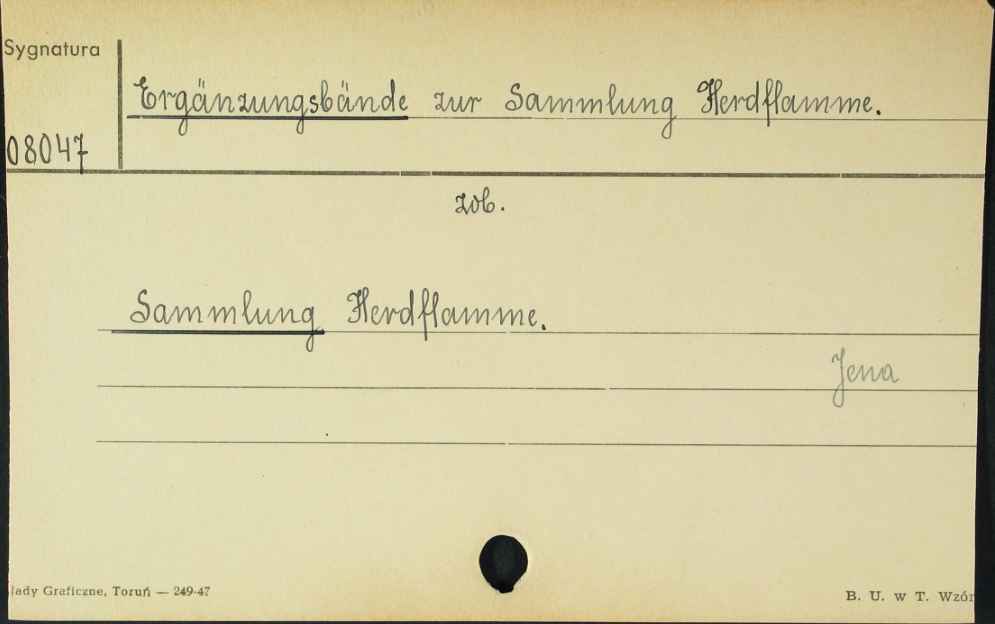 Sygnatura
Ergänzungsbände zur Sammlung Herdflamme.
08047
zob.
Sammlung Herdflamme.
Jena
łady Graficzne, Toruń — 249-47
B. U. w T. Wzór